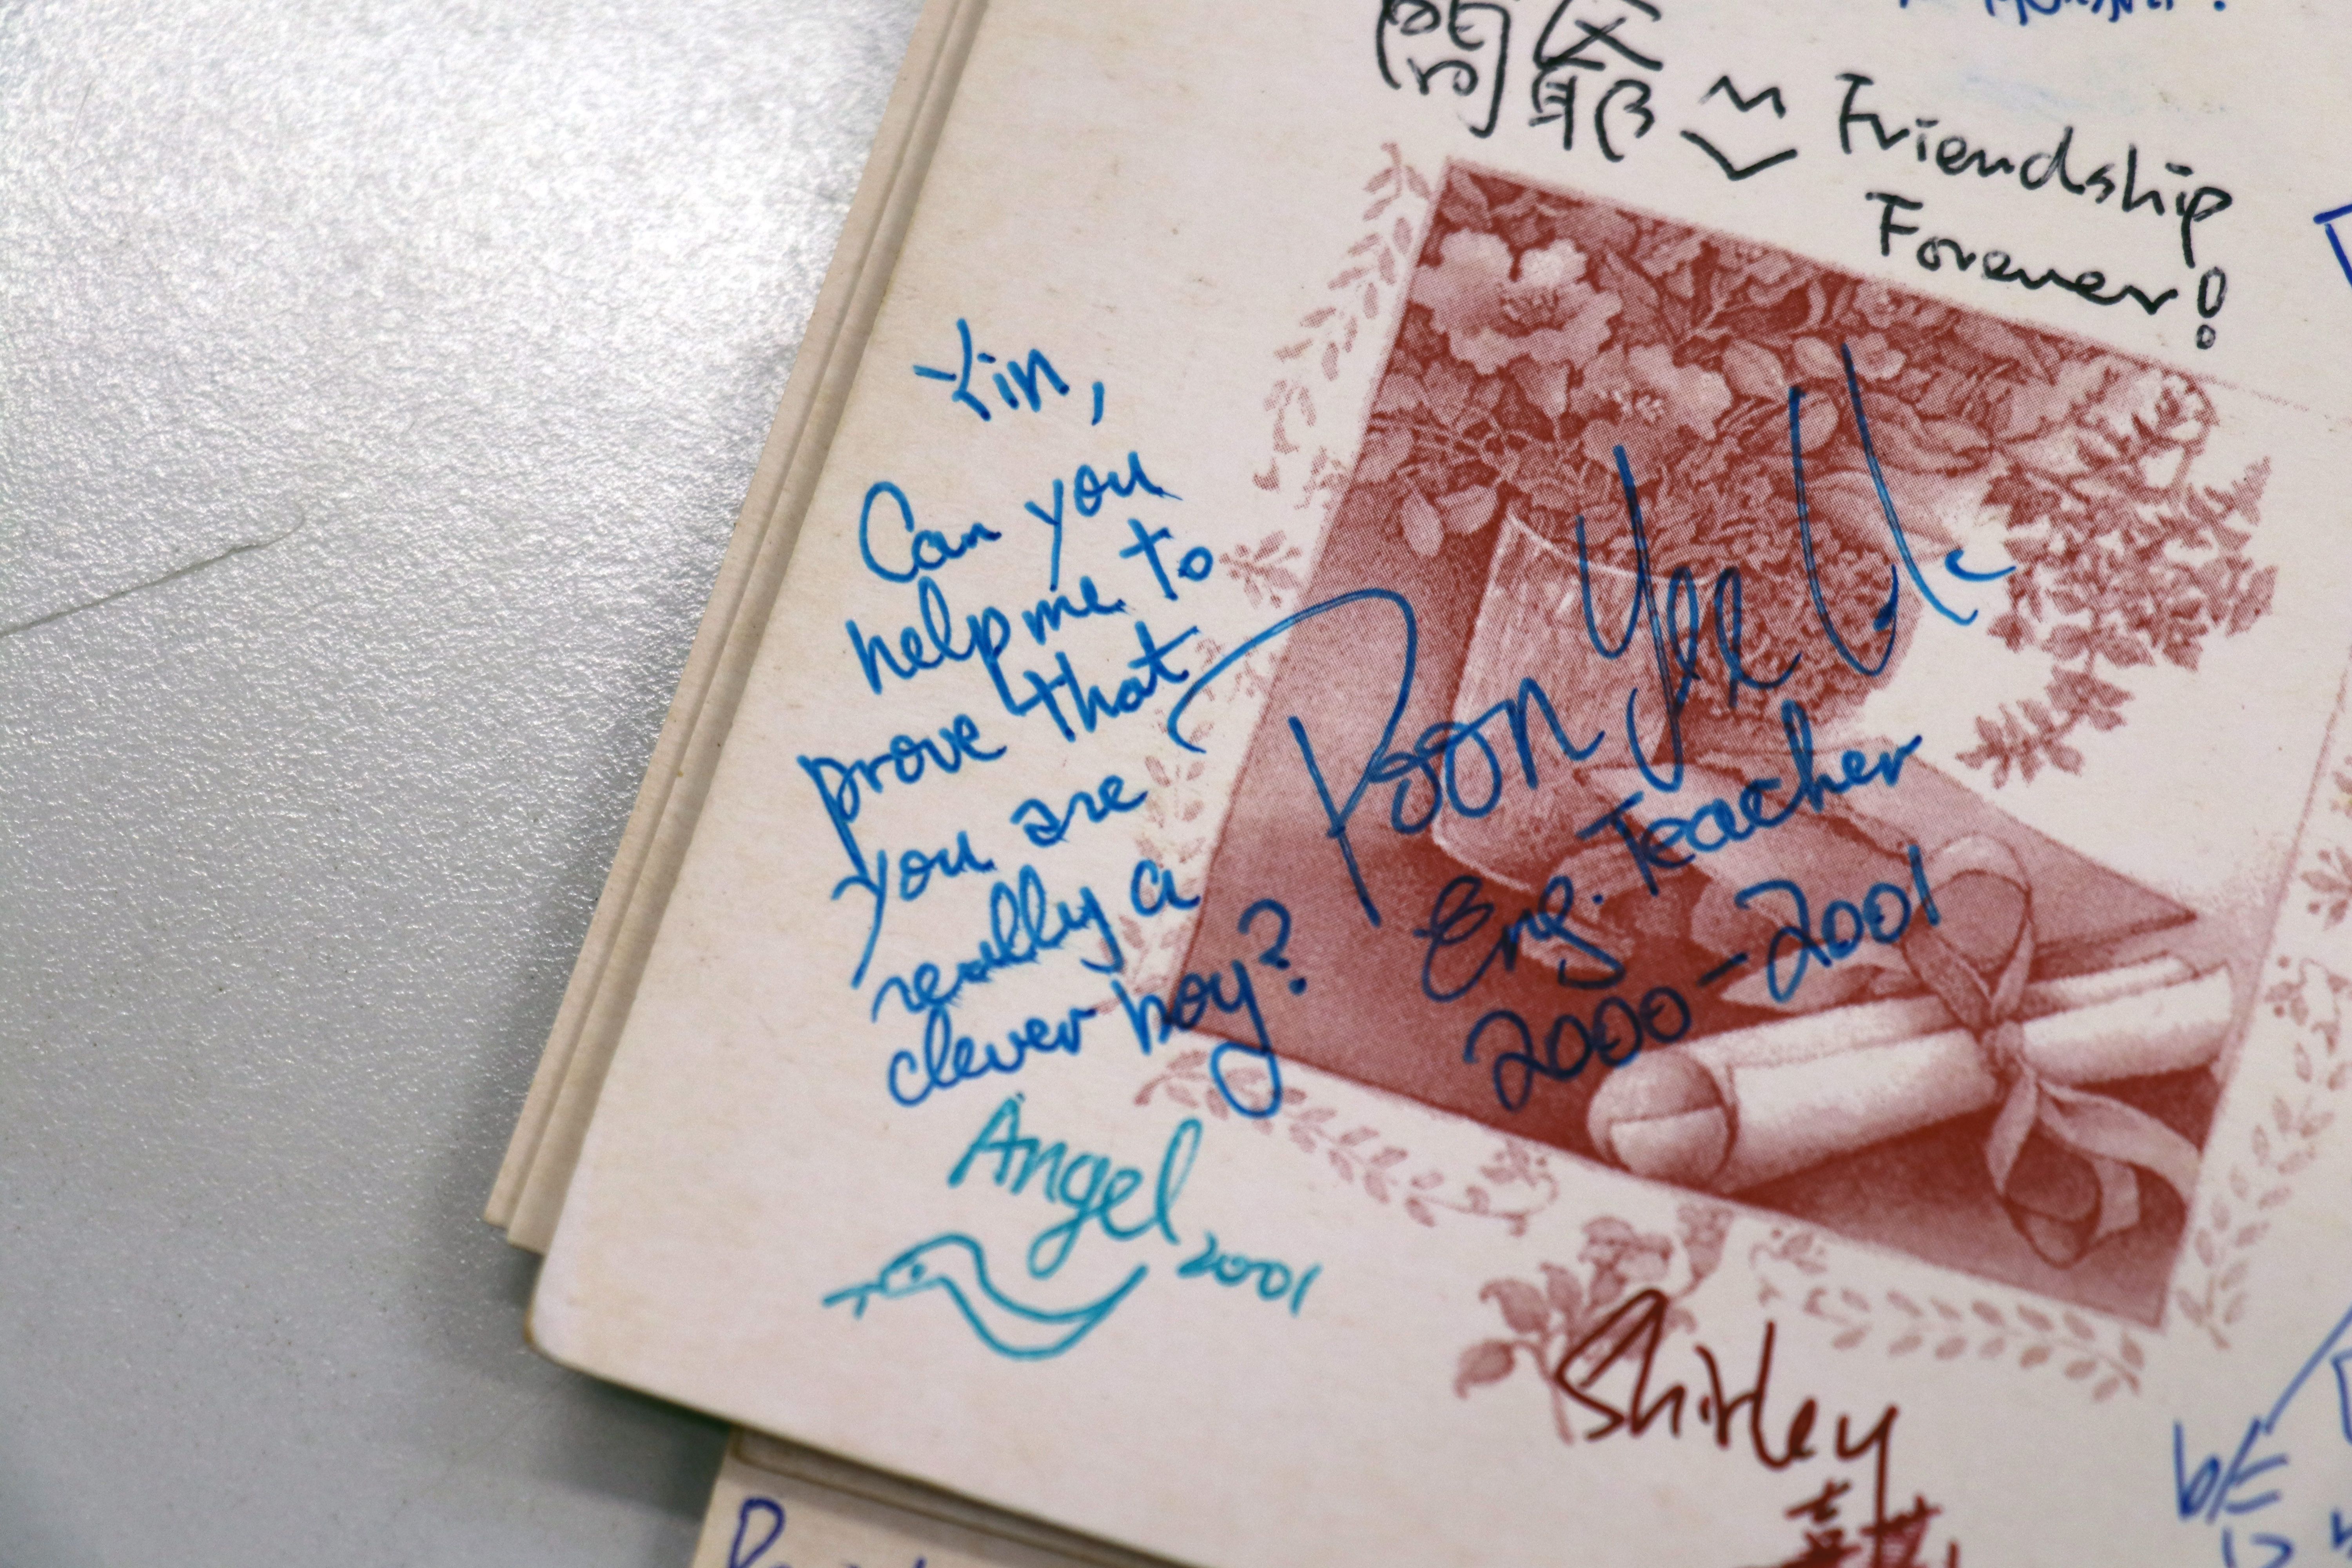 Friendship
Forever!
Yin,
Can you
help me to
prove that
you are
really a
clever boy?
Poon Yee
Eng. Teacher
2000-2001
Angel
2001
Shirley